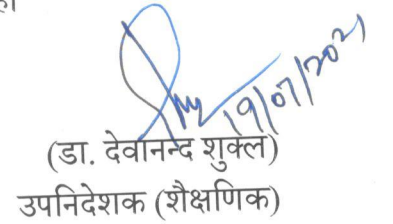 19/07/2021
(डा. देवानन्द शुक्ल)
उपनिदेशक (शैक्षणिक)